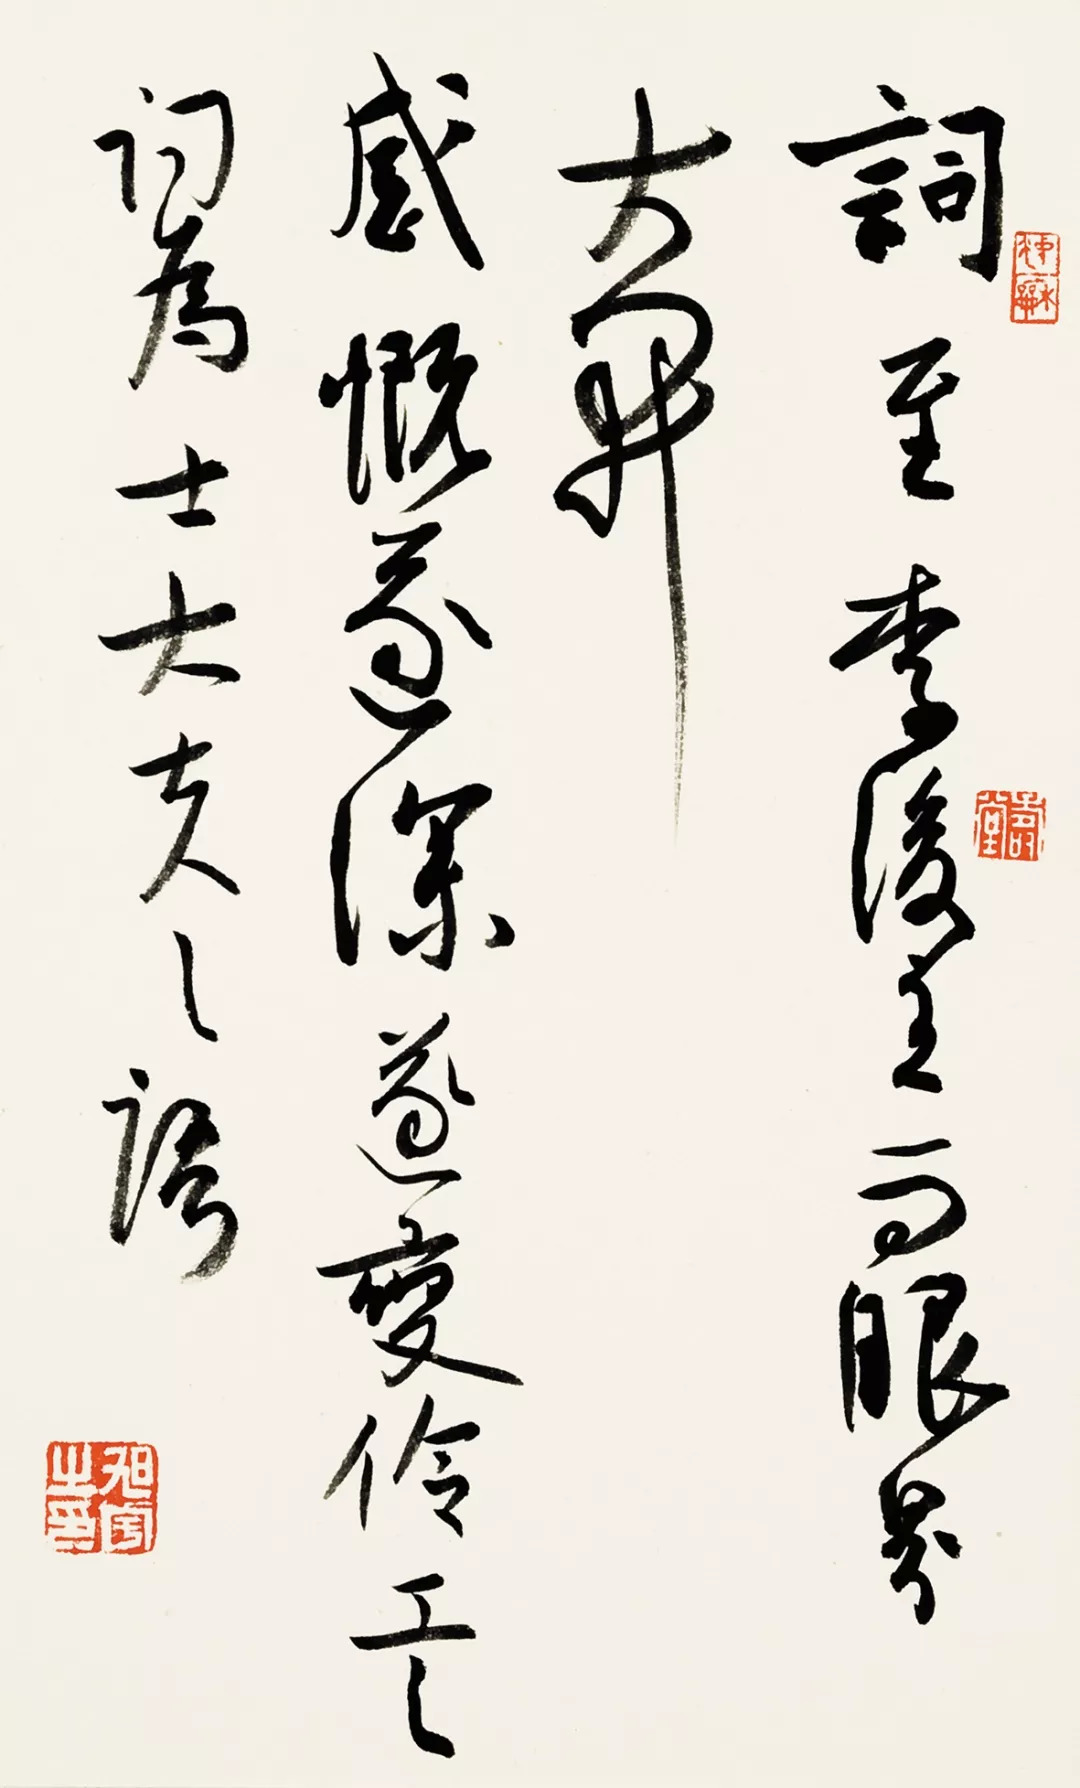 詞至李後主而眼界
大開
感慨遂深遂變伶工之
詞為士大夫之語
旭宇之印